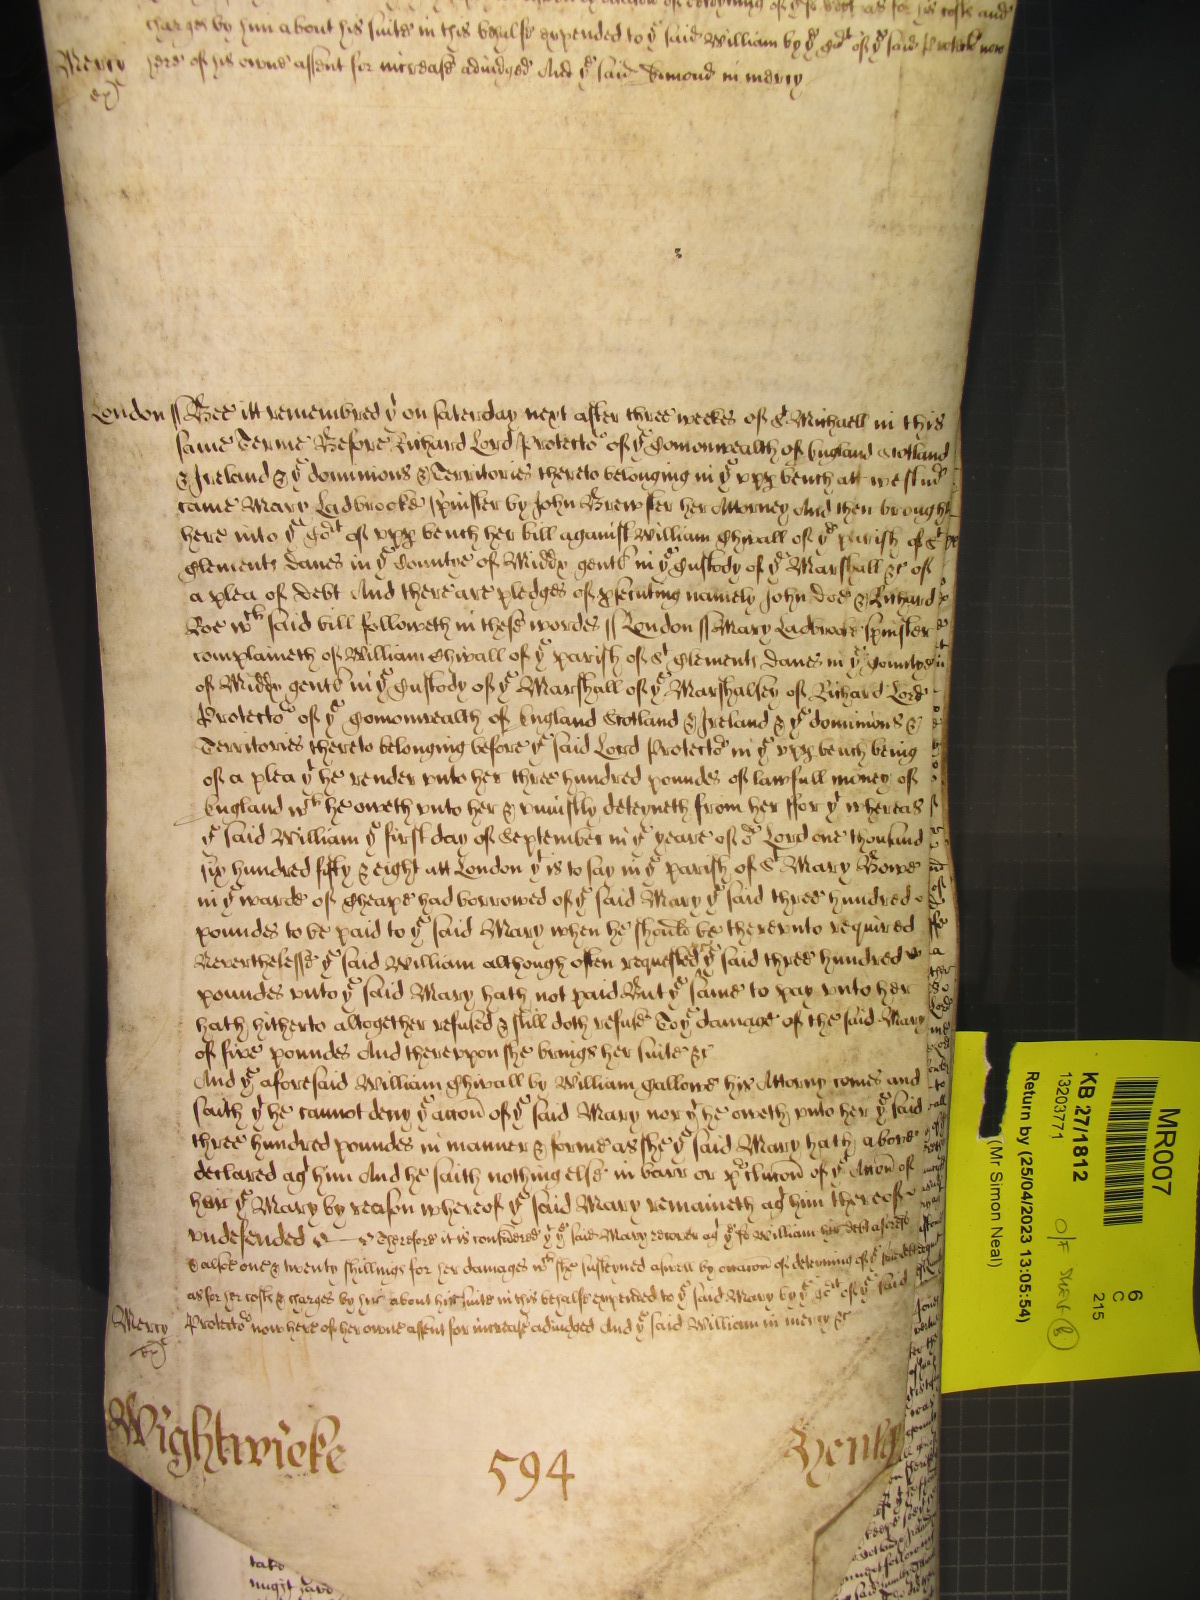 charges by him about his suite in this behalfe expended to ye said William by ye Cort of ye said Protector now
Mercy here of his owne assent for increase adiudged And ye said Edmond in mercy
London ss Bee itt remembred yt on saterday next after three weekes of St Michaell in this
same Terme Before Richard Lord Protector of ye Comonwealth of England Scotland
& Ireland & ye dominions & Territories thereto belonging in ye vpp bench att westmr
came Mary Ladbrooke spinster by John Brewster her Attorney And then brought
here into ye Cort of vpp bench her bill against William Chivall of ye parish of St
Clements Danes in ye Countye of Middx gentl in ye Custody of ye Marshall &c of
a plea of debt And there are pledges of psecuting namely John Doe & Richard
Roe wch said bill followeth in these wordes ss London ss Mary Ladbrooke spinster
complaineth of William Chivall of ye parish of St Clements Danes in ye Countye
of Middx gentl in ye Custody of ye Marshall of ye Marshalsey of Richard Lord
Protector of ye Comonwealth of England Scotland & Ireland & ye dominions &
Territories thereto belonging before ye said Lord Protector in ye vpp bench being
of a plea yt he render vnto her three hundred poundes of lawfull money of
England wch he oweth vnto her & vniustly deteyneth from her ffor yt whereas
ye said William ye first day of September in ye yeare of or Lord one thousand
six hundred fifty & eight att London yt is to say in ye parish of St Mary Bowe
in ye warde of Cheape had borrowed of ye said Mary ye said three hundred
poundes to be paid to ye said Mary when he should be therevnto required
Neverthelesse ye said William although often requested ye said three hundred
poundes vnto ye said Mary hath not paid But ye same to pay vnto her
hath hitherto altogether refused & still doth refuse To ye damage of the said Mary
of five poundes And therevpon she brings her suite &c
And ye aforesaid William Chivall by William Gallone his Attorny comes and
saith yt he cannot deny ye accon of ye said Mary nor yt he oweth vnto her ye said
three hundred poundes in manner & forme as she ye said Mary hath above
declared agt him And he saith nothing else in barr or pclusion of ye Accon of
her ye Mary by reason whereof ye said Mary remaineth agt him thereof
vndefended &c Therefore it is considered yt ye said Mary recover agt ye sd William her debt aforesd
& alsoe one & twenty shillings for her damages wch she susteyned aswell by occacon of deteyning of ye debt
as for her costs & charges by her about her suite in this behalfe expended to ye said Mary by ye Cort of ye said
Mercy Protector now here of her owne assent for increase adiudged And ye said William in mercy &c
Wightwicke 594 Henly
MR007
6
C
215
KB 27/1812
13203771
(Mr Simon Neal)
Return by (25/04/2023 13:05:54)